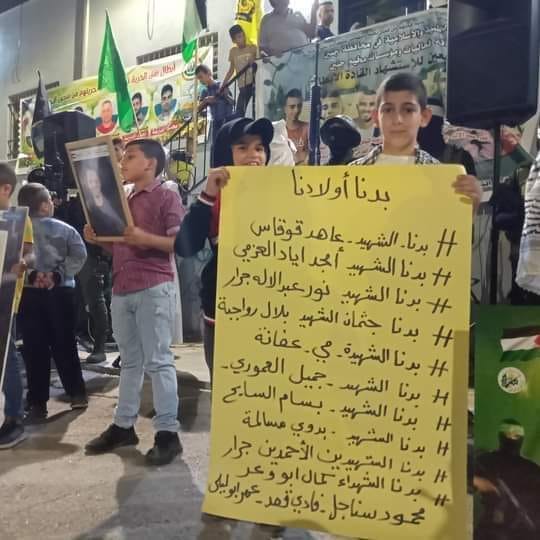 أبطال نفق الحرية
والإسلامية في محافظة جنين
بدنا أولادنا
# بدنا - الشهيد - عاهد قوقاس
# بدنا الشهيد أمجد اياد العزمي
# بدنا الشهيد نور عبدالاله جرار
# بدنا جثمان الشهيد بلال رواجبة
# بدنا الشهيدة - مي - عفانة
# بدنا الشهيد - جميل العموري -
# بدنا الشهيد - بسام السايح
# بدنا الشهيد - بدوي مسالمة
# بدنا الشهيدين الأحمدين جرار
# بدنا الشهداء كمال ابو وعر
محمود سناجل - فادي قعد - عمر ابو ليلى